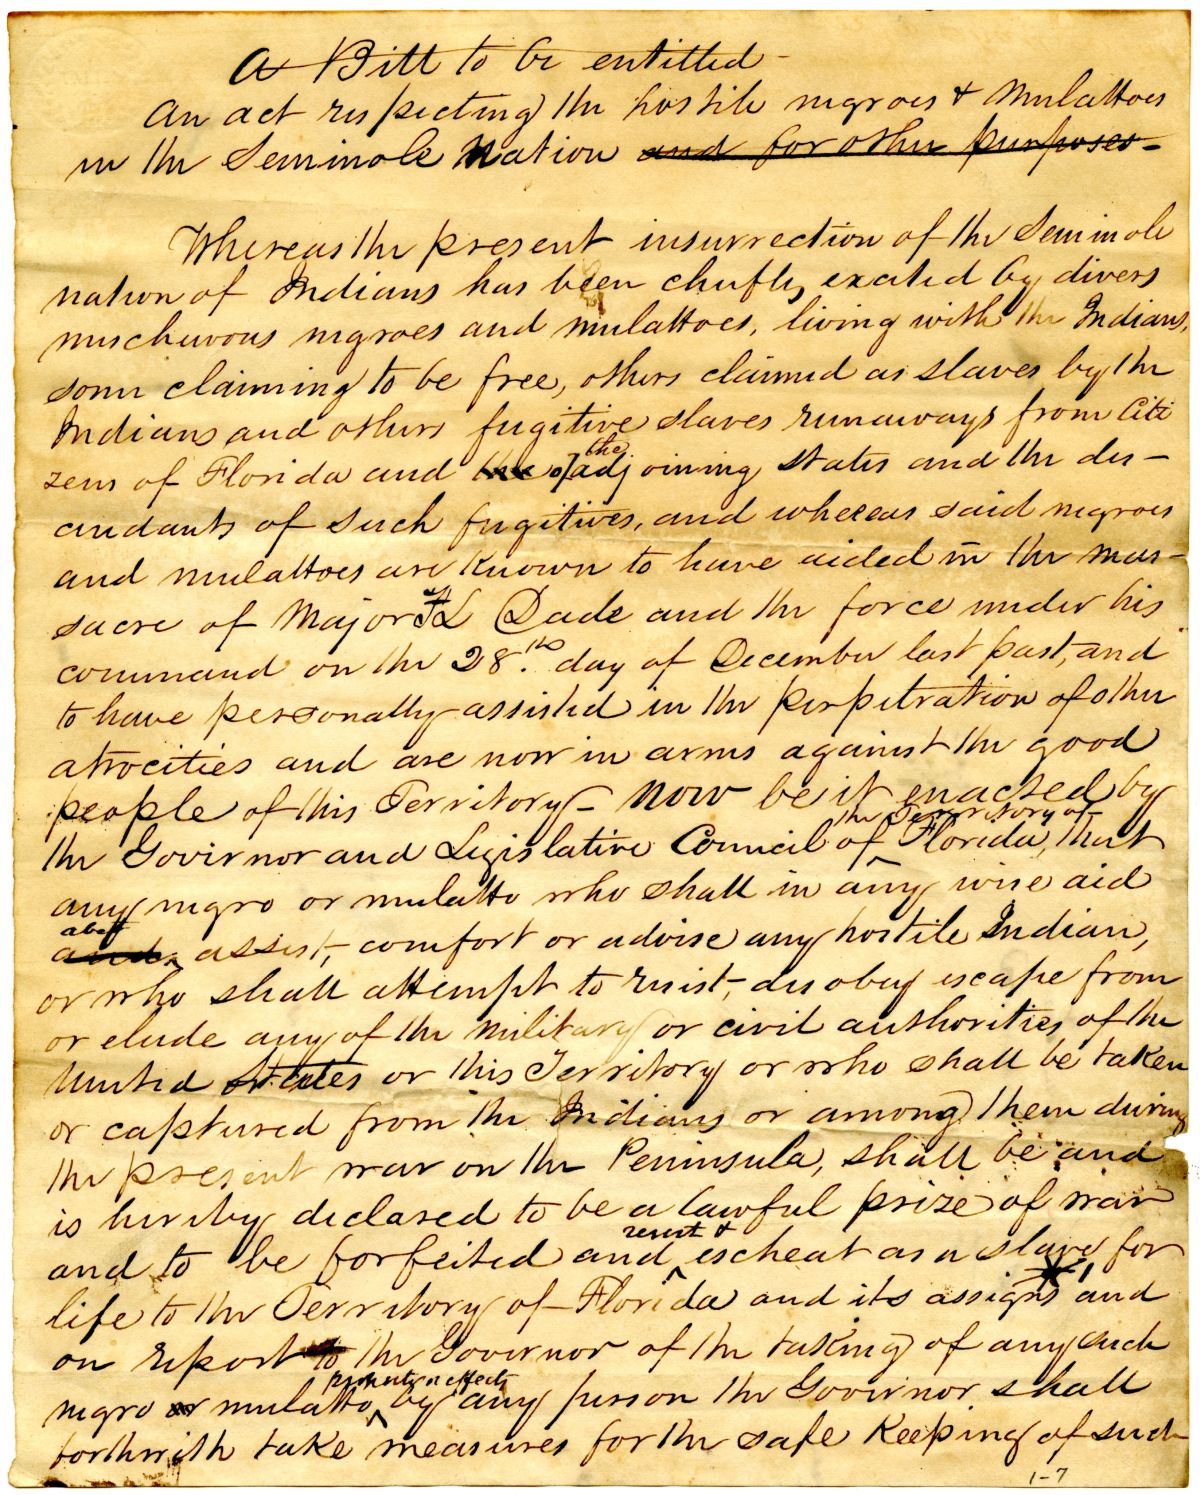 A Bill to be entitled -
An act respecting the hostile negroes & Mulattoes
in the Seminole Nation and for other purposes -
Whereas the present insurrection of the Seminole
nation of Indians has been chiefly excited by divers
mischievous negroes and mulattoes, living with the Indians,
some claiming to be free, others claimed as slaves by the
Indians and others fugitive slaves runaways from Citi
zens of Florida and the of the adjoining states and the des-
cendants of such fugitives, and whereas said negroes
and mulattoes are known to have aided in the mas-
sacre of Major F L Dade and the force under his
command on the 28.th day of December last past, and
to have personally assisted in the perpetration of other
atrocities and are now in arms against the good
people of this Territory - Now be it enacted by
the Governor and Legislative Council of the Territory of Florida, that
any negro or mulatto who shall in any wise aid
and abet assist, comfort or advise any hostile Indian,
or who shall attempt to resist, disobey escape from
or elude any of the military or civil authorities of the
United States or this Territory or who shall be taken
or captured from the Indians or among them during
the present war on the Peninsula, shall be and
is hereby declared to be a lawful prize of war
and to be forfeited and resort & escheat as a slave for
life to the Territory of Florida and its assigns and
on report to the Governor of the taking of any such
negro or mulatto property or effects by any person the Governor shall
forthwith take measures for the safe keeping of such
1-7